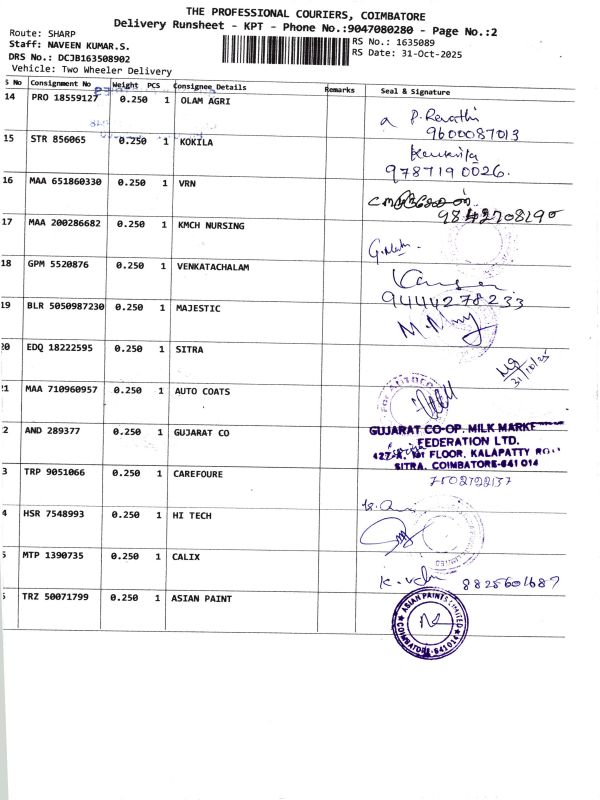 THE PROFESSIONAL COURIERS, COIMBATORE
Delivery Runsheet - KPT - Phone No.:9047080280 - Page No.:2
Route: SHARP
Staff: NAVEEN KUMAR.S.
RS No.: 1635089
DRS No.: DCJB163508902
RS Date: 31-Oct-2025
Vehicle: Two Wheeler Delivery
S No Consignment No Weight PCS Consignee Details Remarks Seal & Signature
14 PRO 18559127 0.250 1 OLAM AGRI
P. Revathi
9600087013
15 STR 856065 0.250 1 KOKILA
Kokila
9787190026.
16 MAA 651860330 0.250 1 VRN
17 MAA 200286682 0.250 1 KMCH NURSING
18 GPM 5520876 0.250 1 VENKATACHALAM
9444278233
19 BLR 5050987230 0.250 1 MAJESTIC
20 EDQ 18222595 0.250 1 SITRA
31/10/25
21 MAA 710960957 0.250 1 AUTO COATS
FOR AUTOCO
2 AND 289377 0.250 1 GUJARAT CO
GUJARAT CO-OP. MILK MARKE
FEDERATION LTD.
427-A, 1st FLOOR, KALAPATTY RO
SITRA, COIMBATORE-641 014
3 TRP 9051066 0.250 1 CAREFOURE
4 HSR 7548993 0.250 1 HI TECH
5 MTP 1390735 0.250 1 CALIX
8825601687
6 TRZ 50071799 0.250 1 ASIAN PAINT
ASIAN PAINTS LIMITED
COIMBATORE-641014